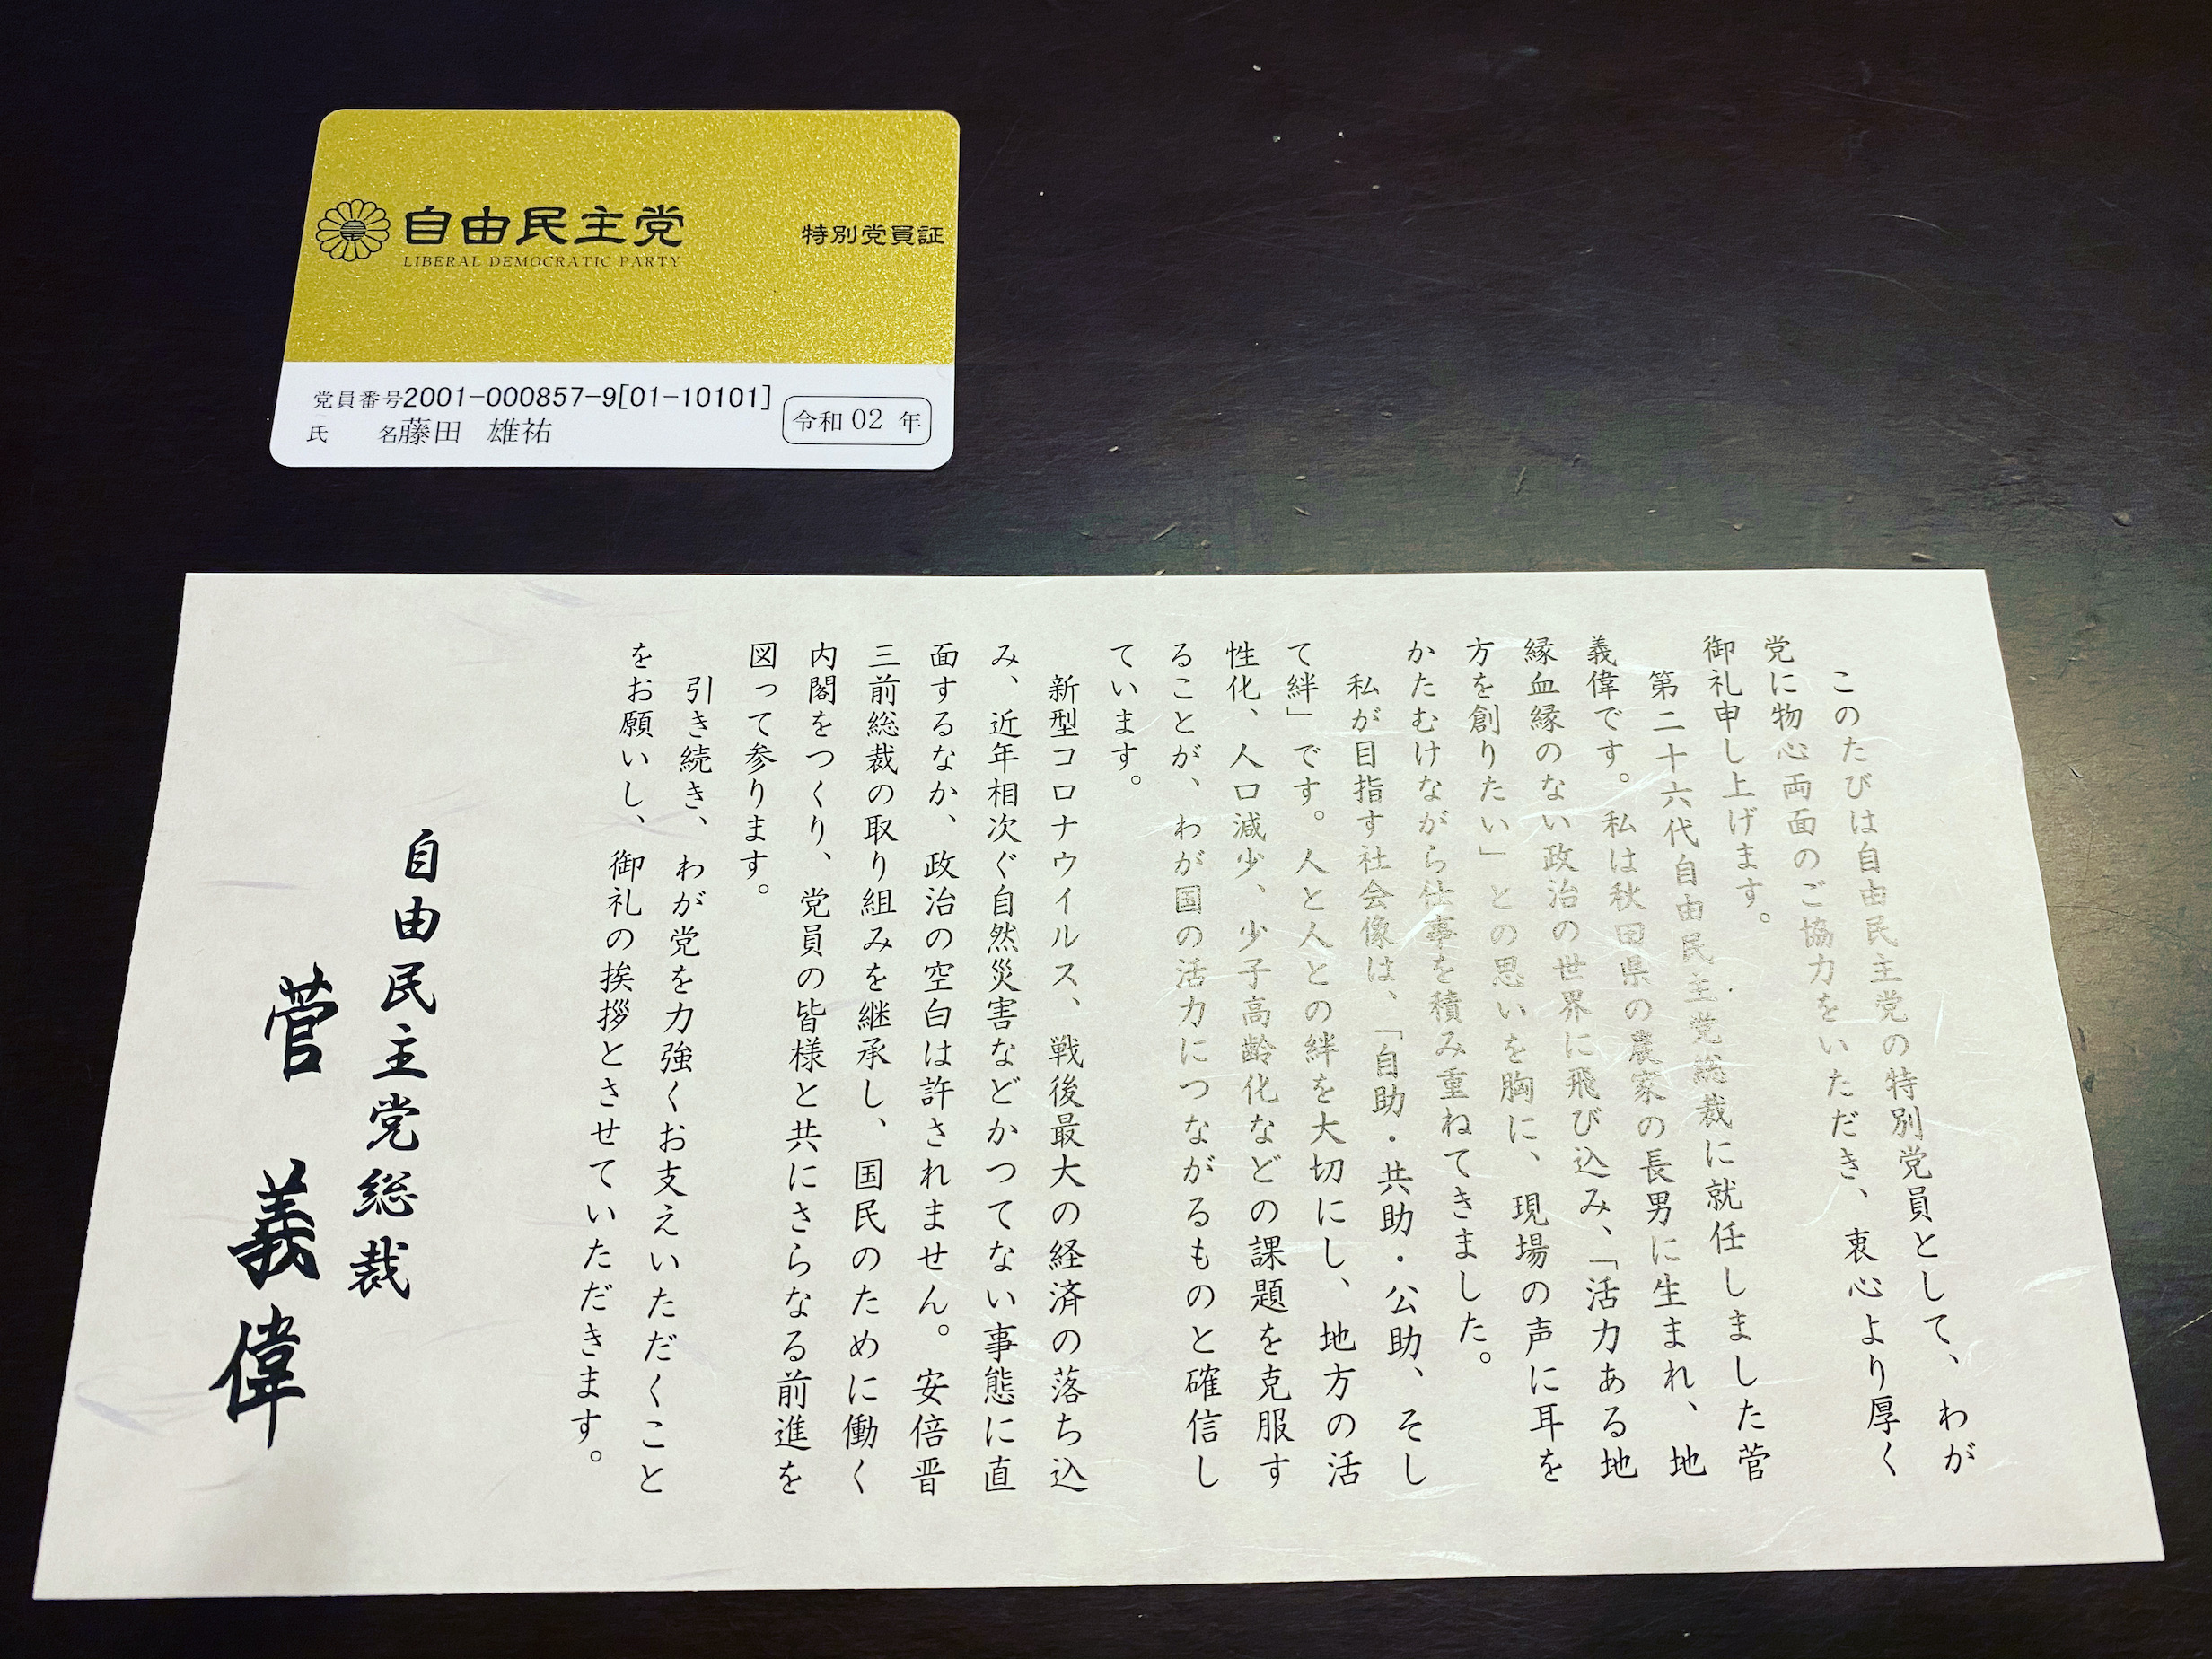 自由民主党
LIBERAL DEMOCRATIC PARTY
特別党員証
党員番号2001-000857-9[01-10101]
氏　名藤田　雄祐
令和02年
このたびは自由民主党の特別党員として、わが
党に物心両面のご協力をいただき、衷心より厚く
御礼申し上げます。
第二十六代自由民主党総裁に就任しました菅
義偉です。私は秋田県の農家の長男に生まれ、地
縁血縁のない政治の世界に飛び込み、「活力ある地
方を創りたい」との思いを胸に、現場の声に耳を
かたむけながら仕事を積み重ねてきました。
私が目指す社会像は、「自助・共助・公助、そし
て絆」です。人と人との絆を大切にし、地方の活
性化、人口減少、少子高齢化などの課題を克服す
ることが、わが国の活力につながるものと確信し
ています。
新型コロナウイルス、戦後最大の経済の落ち込
み、近年相次ぐ自然災害などかつてない事態に直
面するなか、政治の空白は許されません。安倍晋
三前総裁の取り組みを継承し、国民のために働く
内閣をつくり、党員の皆様と共にさらなる前進を
図って参ります。
引き続き、わが党を力強くお支えいただくこと
をお願いし、御礼の挨拶とさせていただきます。
自由民主党総裁
菅　義偉